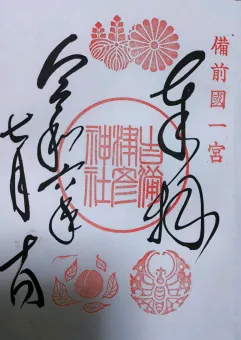 備前國一宮
奉拝
吉備
津彦
神社
令和六年
七月吉日